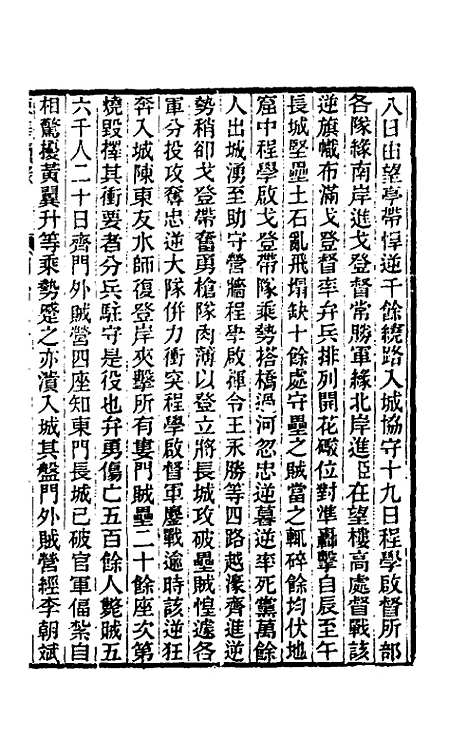 八日由望亭帶悍逆千餘繞路入城協守十九日程學啟督所部
各隊緣南岸進戈登督常勝軍緣北岸進臣在望樓高處督戰該
逆旗幟布滿戈登督率弁兵排列開花礮位對準轟擊自辰至午
長城堅壘土石亂飛塌缺十餘處守壘之賊當之輒碎餘均伏地
窟中程學啟戈登帶隊乘勢搭橋過河忽忠逆慕逆率死黨萬餘
人出城湧至助守營牆程學啟裨令王永勝等四路越濠齊進逆
勢稍卻戈登帶奮勇槍隊肉薄以登立將長城攻破壘賊惶遽各
軍分投攻奪忠逆大隊併力衝突程學啟督軍鏖戰逾時該逆狂
奔入城陳東友水師復登岸夾擊所有婁門賊壘二十餘座次第
燒毀擇其衝要者分兵駐守是役也弁勇傷亡五百餘人斃賊五
六千人二十日齊門外賊營四座知東門長城已破官軍偪紮自
相驚擾黃翼升等乘勢蹙之亦潰入城其盤門外賊營經李朝斌